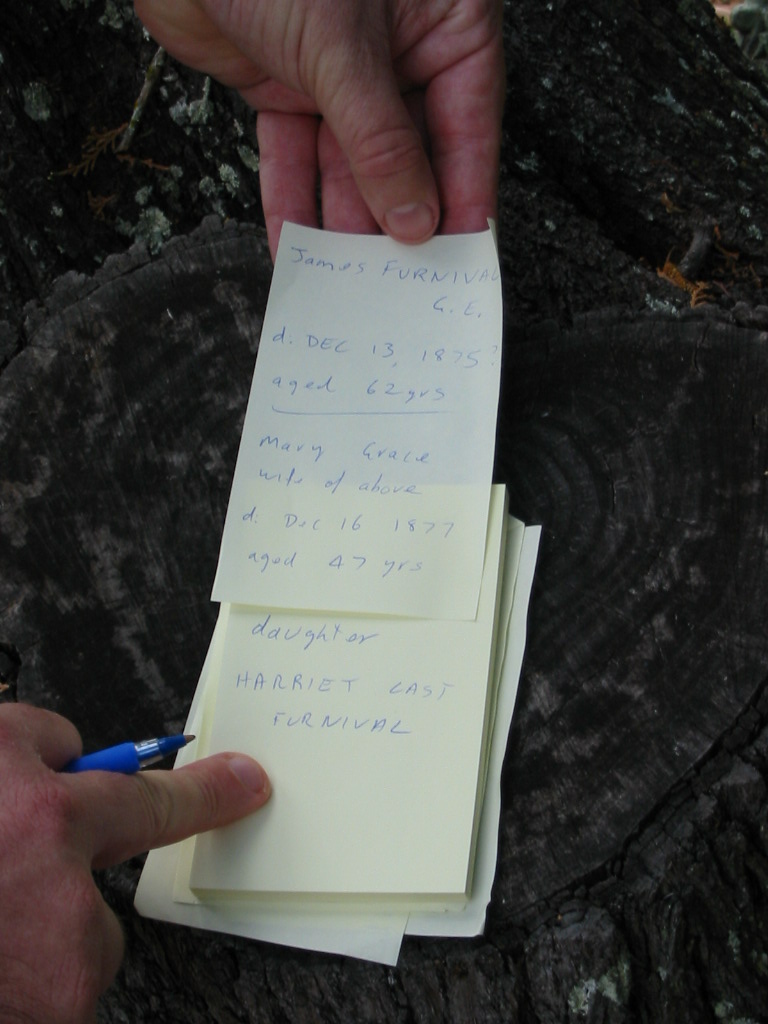 James FURNIVAL
C.E.
d. DEC 13, 1875?
aged 62 yrs
Mary Grace
wife of above
d: Dec 16 1877
aged 47 yrs
daughter
HARRIET LAST
FURNIVAL